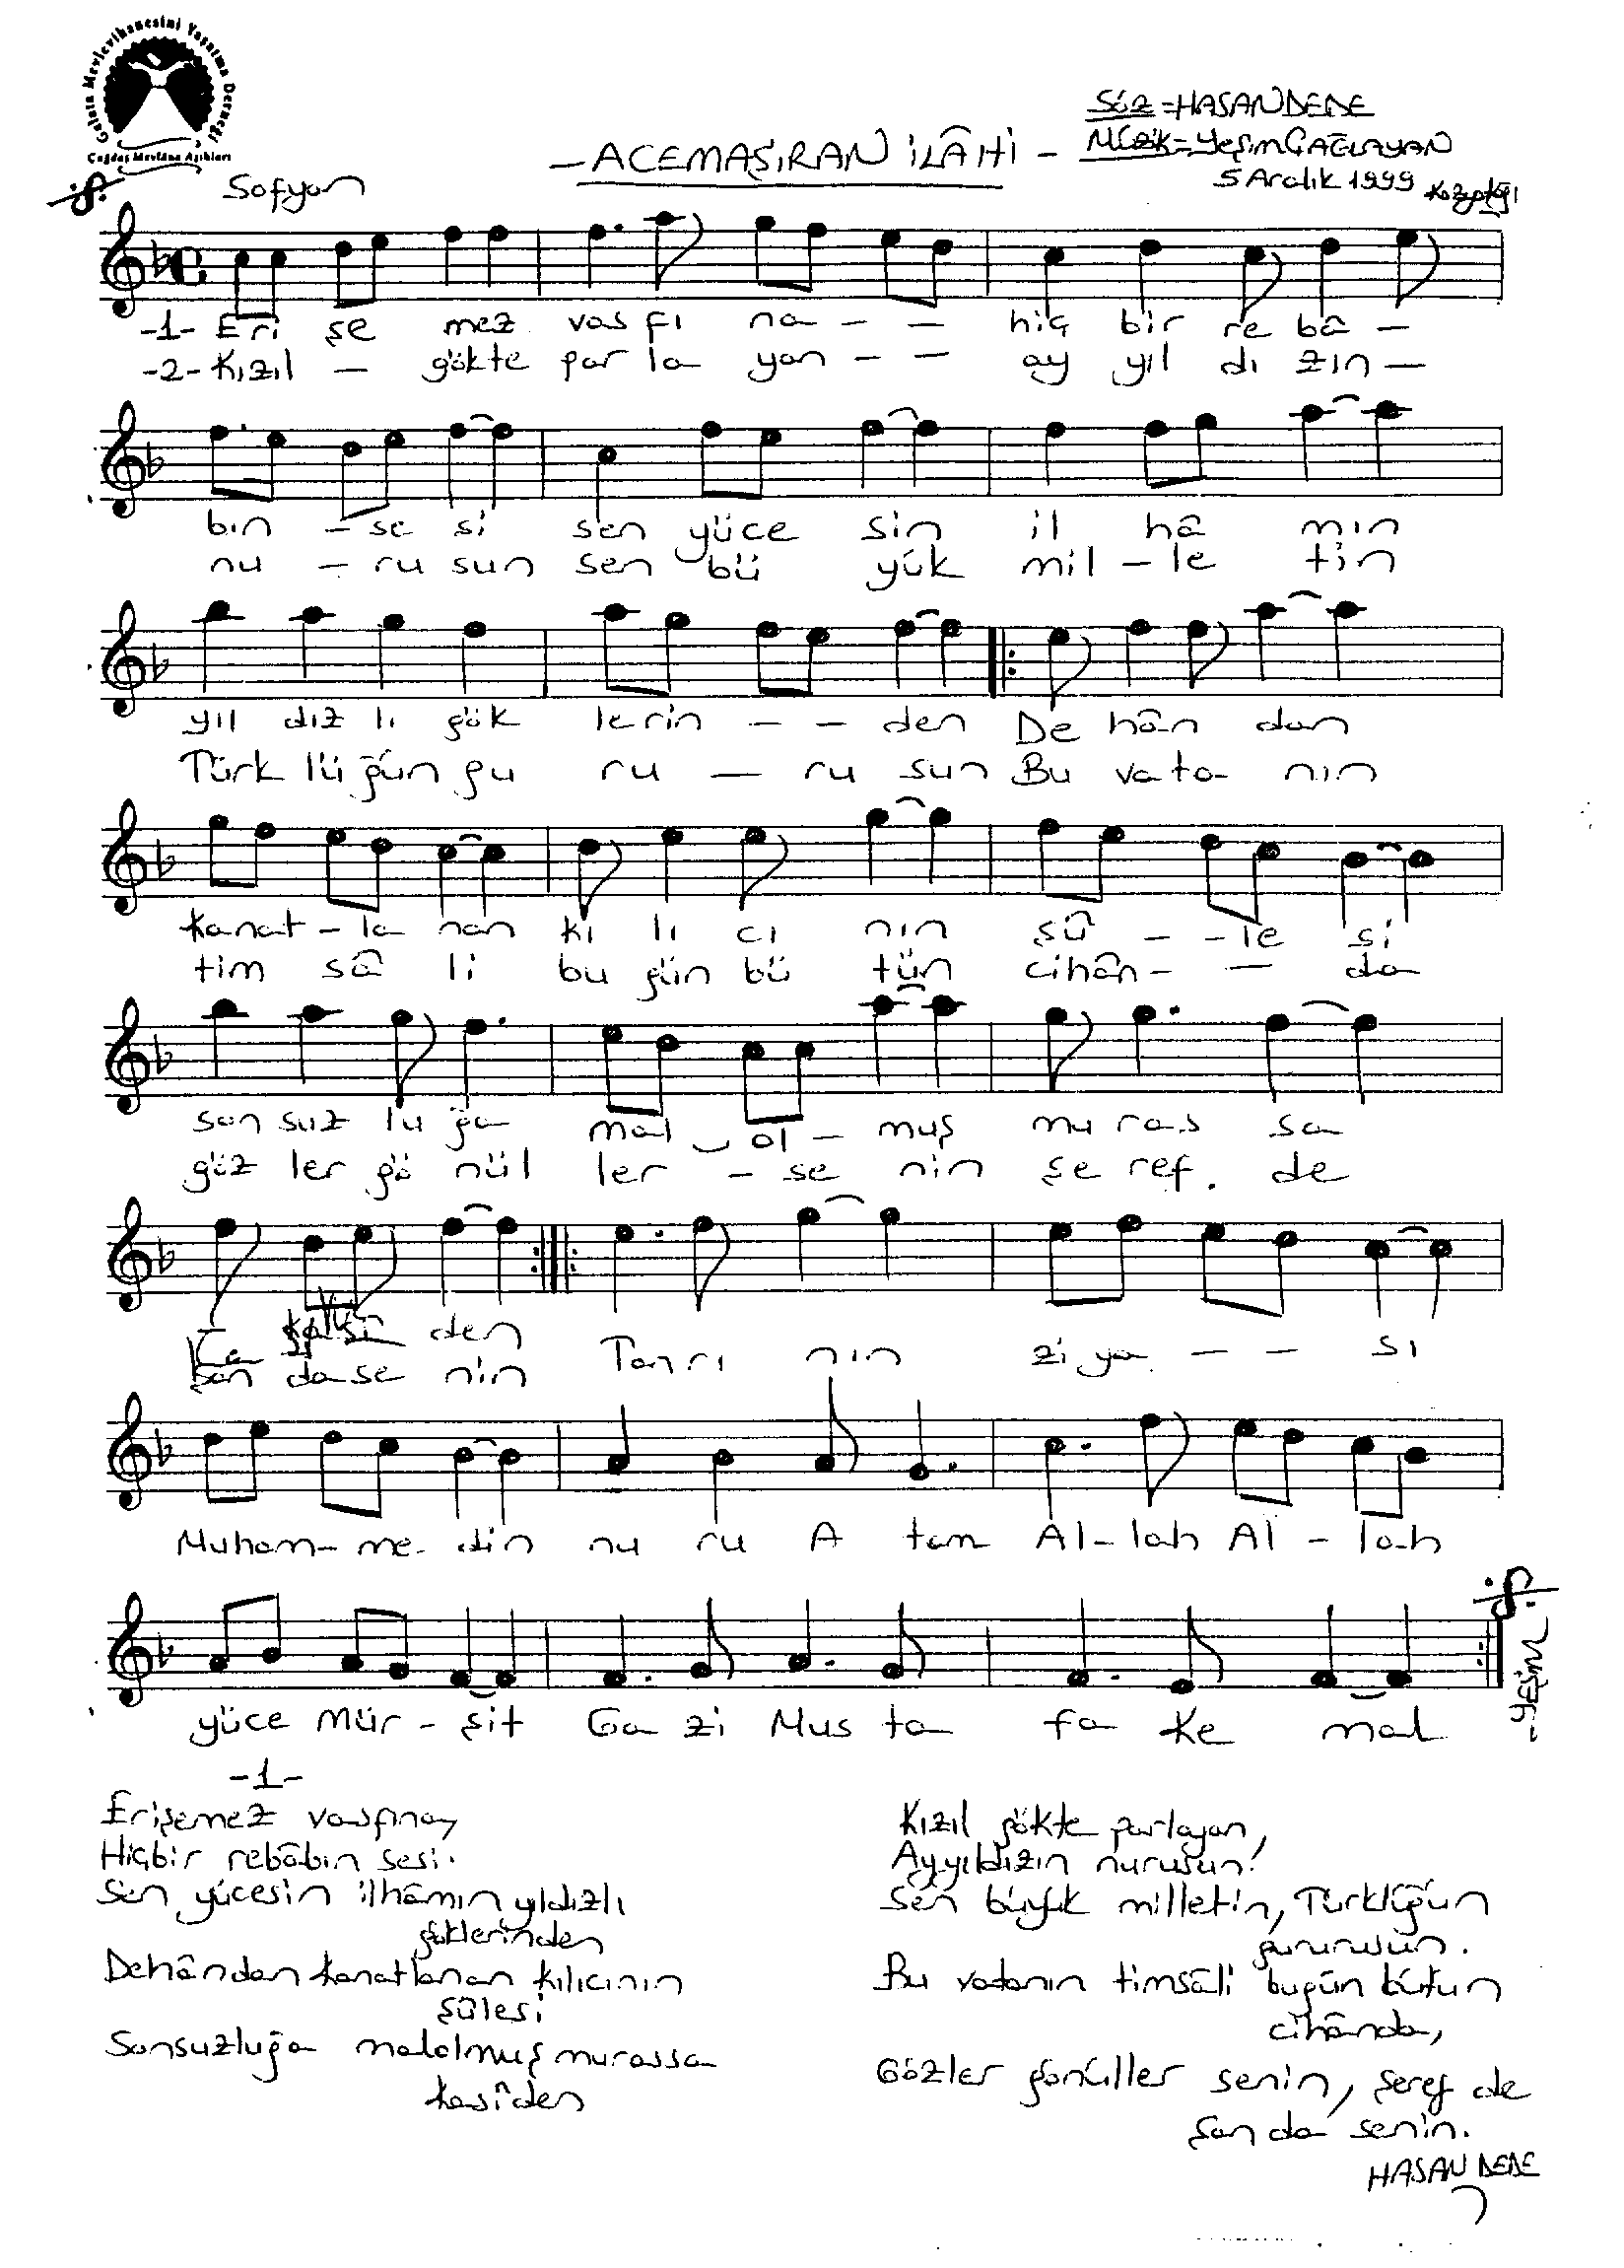 Galata Mevlevihanesini Yaşatma Derneği
Çağdaş Mevlâna Aşıkları
Söz = HASAN DEDE
- ACEMAŞİRAN İLÂHİ -
Müzik = Yeşim ÇAĞLAYAN
5 Aralık 1999 Kozyatağı
Sofyan
-1- Eri şe mez vas fı na - - - hiç bir re bâ -
-2- Kızıl - gökte par la yan - - ay yıl dı zın -
bın - se si sen yüce sin il hâ mın
nu - ru sun sen bü yük mil - le tin
yıl dız lı gök lerin - - den De hân dan
Türk lü ğün gu ru - ru sun Bu vata nın
kanat - la nan kı lı cı nın şû - - le si
tim sâ li bu gün bü tün cihân - - da
son suz lu ğa mal ol - muş mu ras sa
göz ler gö nül ler - se nin şe ref. de
ka sî den
şan da se nin Tanrı nın zi ya - - sı
Muham - me - din nu ru A tam Al - lah Al - lah
yüce Mür - şit Ga zi Mus ta fa Ke mal
- YEŞİM
-1-
Erişemez vasfına,
Hiçbir rebâbın sesi.
Sen yücesin ilhâmın yıldızlı
göklerinden
Dehândan kanatlanan kılıcının
şûlesi
Sonsuzluğa malolmuş murassa
kasîden
Kızıl gökte parlayan,
Ayyıldızın nurusun!
Sen büyük milletin, Türklüğün
gururusun.
Bu vatanın timsâli bugün bütün
cihânda,
Gözler gönüller senin, şeref de
şan da senin.
HASAN DEDE